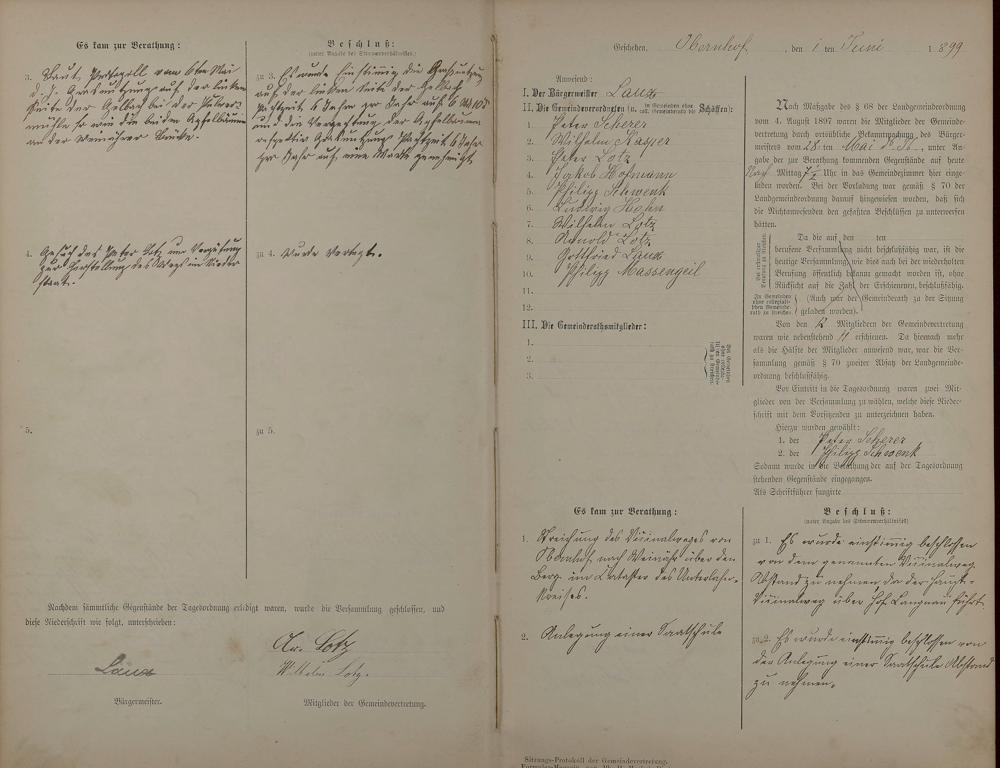 Es kam zur Berathung:
3. Laut Protokoll vom 6ten Mai
d. J. Grasnutzung auf der linken
Seite der Gelbach bei der Pulver-
mühle so wie die beiden Apfelbäume
an der Weinährer Brücke.
4. Gesuch des Peter Lotz um Vergütung
zur Herstellung des Wegs im
5.
Beschluß:
(unter Angabe des Stimmenverhältnisses.)
zu 3. Es wurde einstimmig die Grasnutzung
auf der linken Seite der Gelbach
Pachtzeit 6 Jahre per Jahr auf 6 M 10
und die der Apfelbäume
Grasnutzung Pachtzeit 6 Jahr
per Jahr auf eine Mark genehmigt
zu 4. Wurde vertagt.
zu 5.
Nachdem sämmtliche Gegenstände der Tagesordnung erledigt waren, wurde die Versammlung geschlossen, und
diese Niederschrift wie folgt, unterschrieben:
Ar. Lotz
Wilhelm Lotz.
Bürgermeister.
Mitglieder der Gemeindevertretung.
Geschehen, Obernhof, den 1 ten Juni 1899
Anwesend:
I. Der Bürgermeister
II. Die Gemeindeverordneten
1. Peter Scherer
2. Wilhelm Kasper
3. Peter Lotz
4. Jakob Hofmann
5. Philipp Schwenk
6. Ludwig Hahn
7. Wilhelm Lotz
8. Arnold Lotz
9. Gottfried
10. Philipp Massengeil
11.
12.
III. Die Gemeinderathsmitglieder:
1.
2.
3.
Nach Maßgabe des § 68 der Landgemeindeordnung
vom 4. August 1897 waren die Mitglieder der Gemeinde-
vertretung durch ortsübliche Bekanntmachung des Bürger-
meisters vom 28 ten Mai d. Js., unter An-
gabe der zur Berathung kommenden Gegenstände auf heute
Nach Mittag 7 1/2 Uhr in das Gemeindezimmer hier einge-
laden worden. Bei der Vorladung war gemäß § 70 der
Landgemeindeordnung darauf hingewiesen worden, daß sich
die Nichtanwesenden den gefaßten Beschlüssen zu unterwerfen
hätten.
Da die auf den ten
berufene Versammlung nicht beschlußfähig war, ist die
heutige Versammlung, wie dies nach bei der wiederholten
Berufung öffentlich bekannt gemacht worden ist, ohne
Rücksicht auf die Zahl der Erschienenen, beschlußfähig.
(Auch war der Gemeinderath zu der Sitzung
geladen worden).
Von den 12 Mitgliedern der Gemeindevertretung
waren wie nebenstehend 11 erschienen. Da hiernach mehr
als die Hälfte der Mitglieder anwesend war, war die Ver-
sammlung gemäß § 70 zweiter Absatz der Landgemeinde-
ordnung beschlußfähig.
Vor Eintritt in die Tagesordnung waren zwei Mit-
glieder von der Versammlung zu wählen, welche diese Nieder-
schrift mit dem Vorsitzenden zu unterzeichnen haben.
Hierzu wurden gewählt:
1. der Peter Scherer
2. der Philipp Schwenk
Sodann wurde in die Berathung der auf der Tagesordnung
stehenden Gegenstände eingegangen.
Als Schriftführer fungirte
Es kam zur Berathung:
1. Streichung des Vizinalweges von
Obernhof nach Weinähr über den
Berg im Kataster des Unterlahn-
kreises.
2. Anlegung einer Saatschule
Beschluß:
(unter Angabe des Stimmenverhältnisses)
zu 1. Es wurde einstimmig beschlossen
von dem genannten Vizinalweg
Abstand zu nehmen, da der Haupt-
Vizinalweg über Hof Langnau führt.
zu 2. Es wurde einstimmig beschlossen von
der Anlegung einer Saatschule Abstand
zu nehmen.
Sitzungs-Protokoll der Gemeindevertretung.